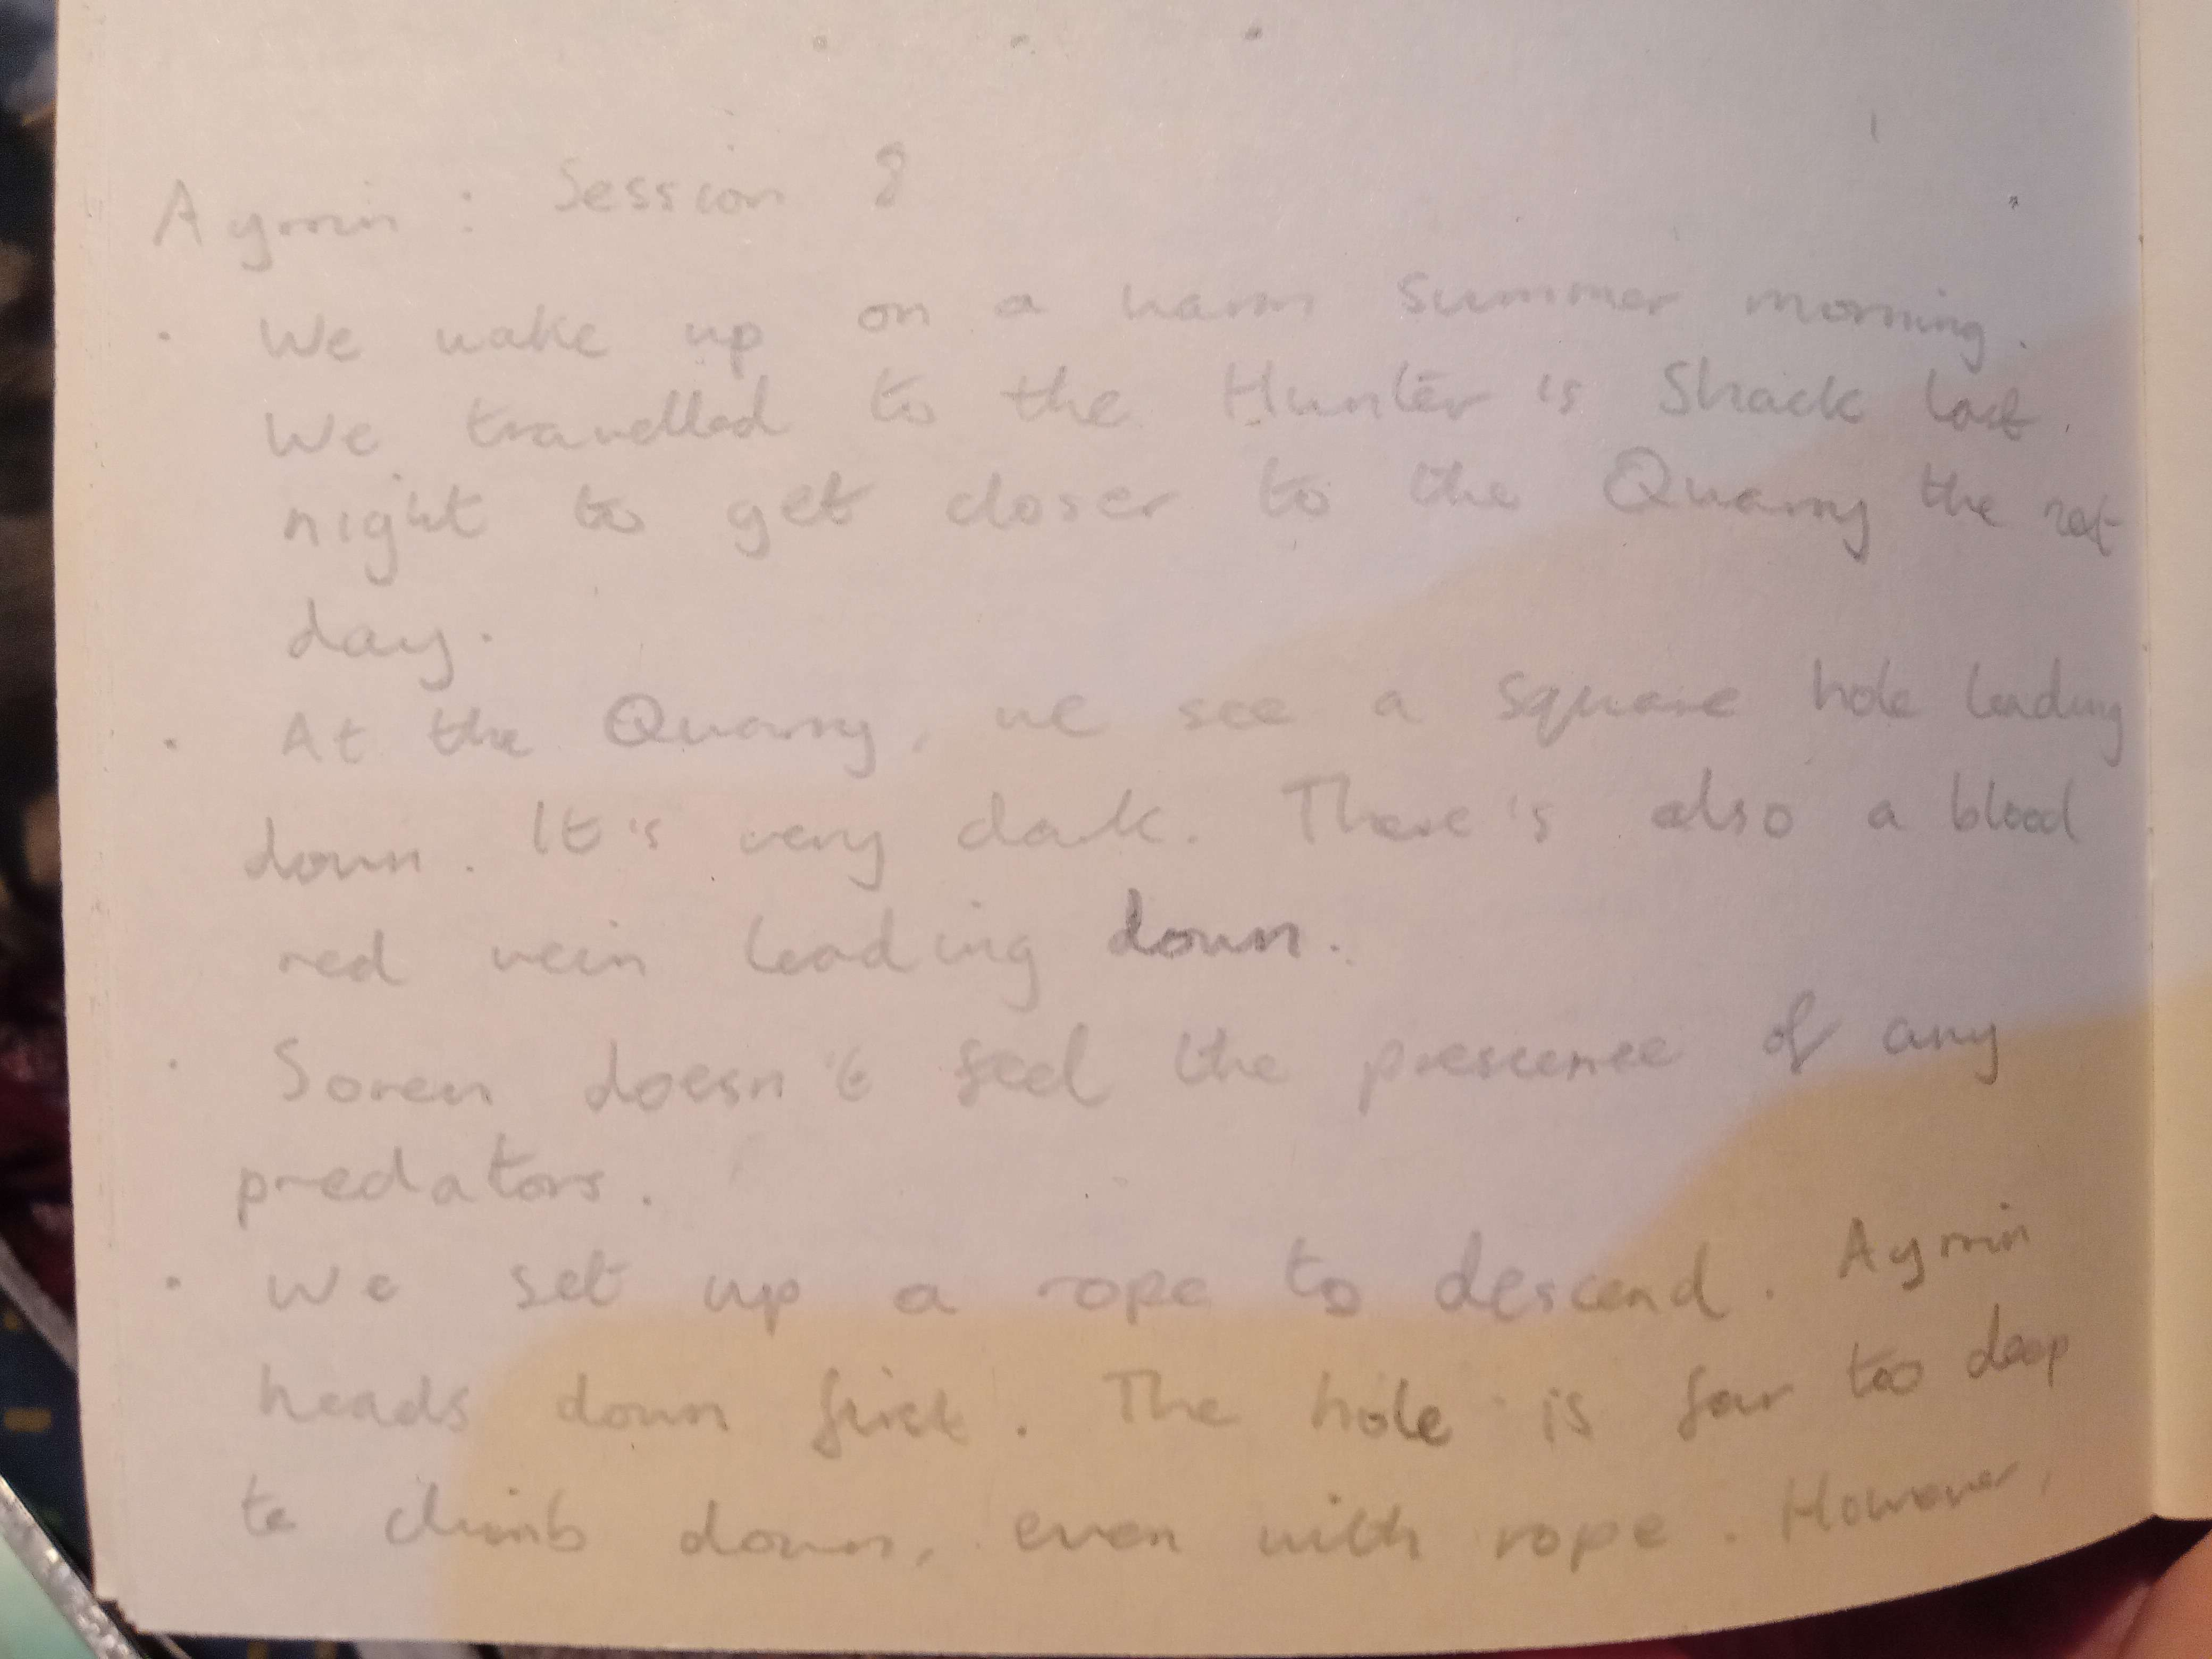 Aymin : Session 8
· We wake up on a warm summer morning.
We travelled to the Hunter's Shack last
night to get closer to the Quarry the
day.
· At the Quarry, we see a square hole leading
down. It's very dark. There's also a blood
red vein leading down.
· Soren doesn't feel the prescence of any
predators.
· We set up a rope to descend. Aymin
heads down first. The hole is far too deep
to climb down, even with rope. However,